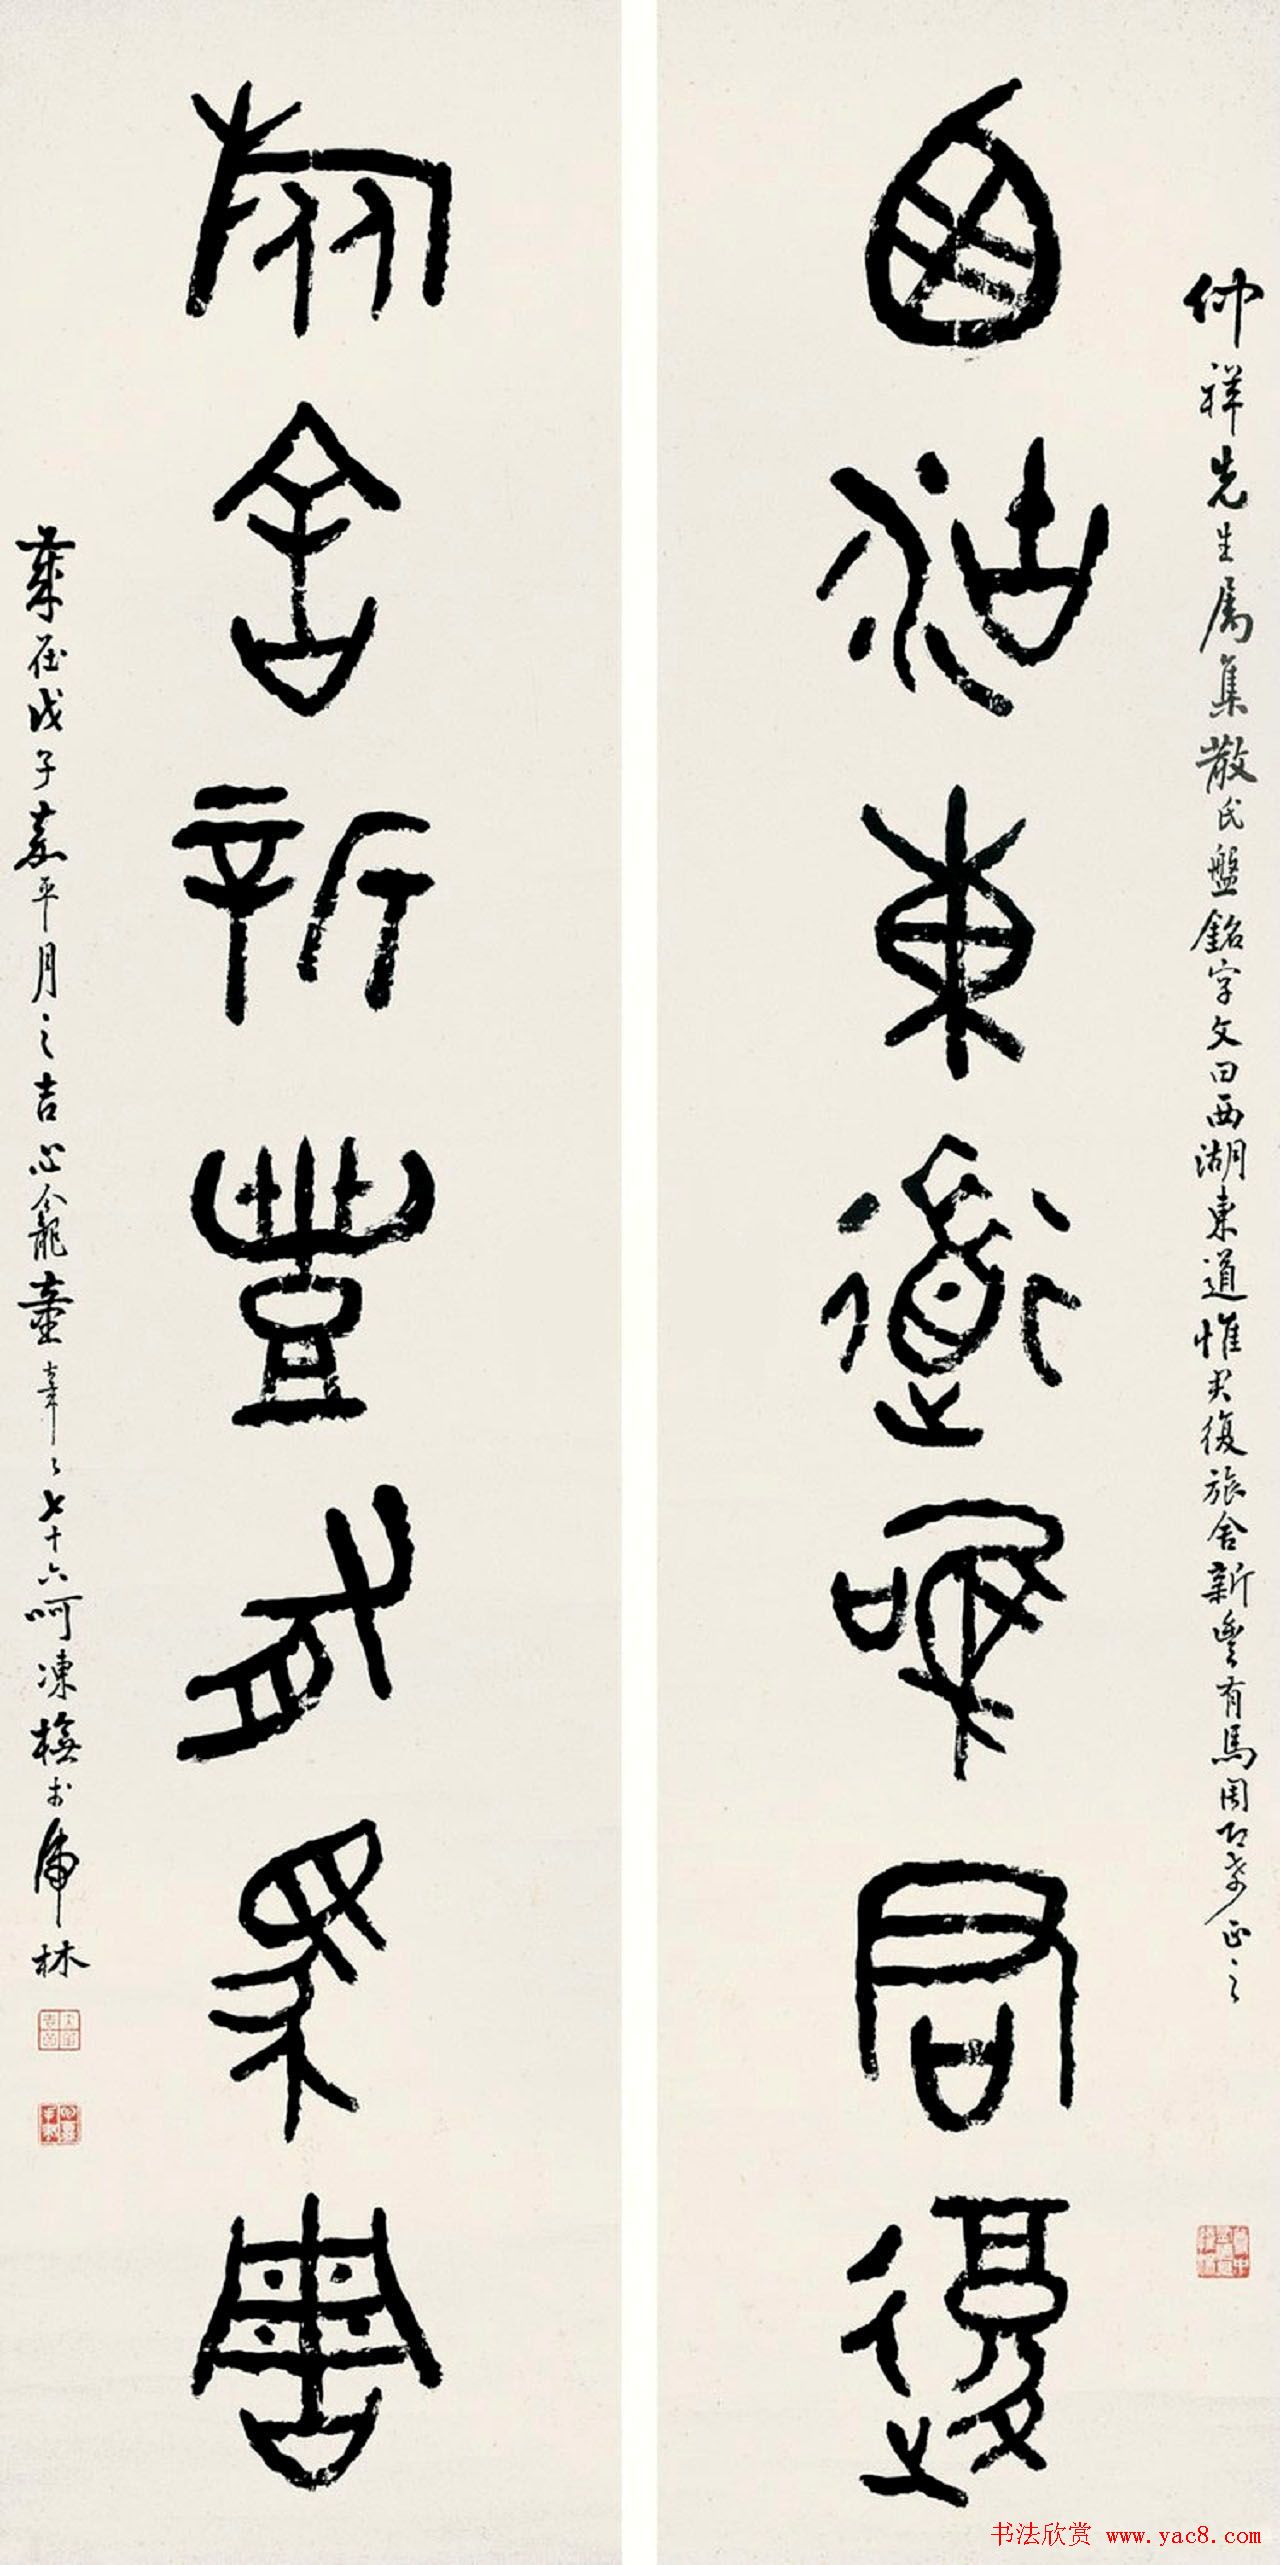 仲祥先生属集散氏盤銘字文曰西湖東道惟君復旅舍新豐有馬周即希正之
西湖東道唯君復
旅舍新豐有馬周
歲在戊子嘉平月之吉心龕童大年年七十六呵凍橅於虎林
书法欣赏 www.yac8.com